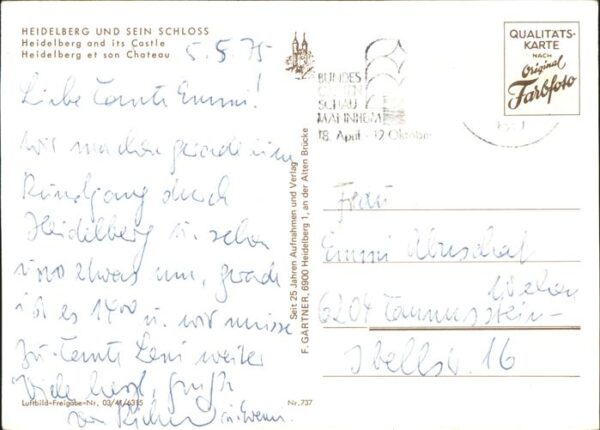 HEIDELBERG UND SEIN SCHLOSS
Heidelberg and its Castle
Heidelberg et son Chateau
5.5.75
Liebe Tante Emmi!
wir machen gerade einen
Rundgang durch
Heidelberg u. sehen
uns etwas um, gerade
ist es 1400 u. wir müssen
zu Tante Leni weiter
Viele herzl. Grüße
von
Seit 25 Jahren Aufnahmen und Verlag
F. GÄRTNER, 6900 Heidelberg 1, an der Alten Brücke
BUNDES
GARTEN
SCHAU
MANNHEIM
18. April - 12 Oktober
QUALITÄTS-
KARTE
NACH
Original
Farbfoto
Frau
Emmi
Wehen
6204 Taunusstein-
16
Luftbild-Freigabe-Nr. 03/41/6315
Nr. 737